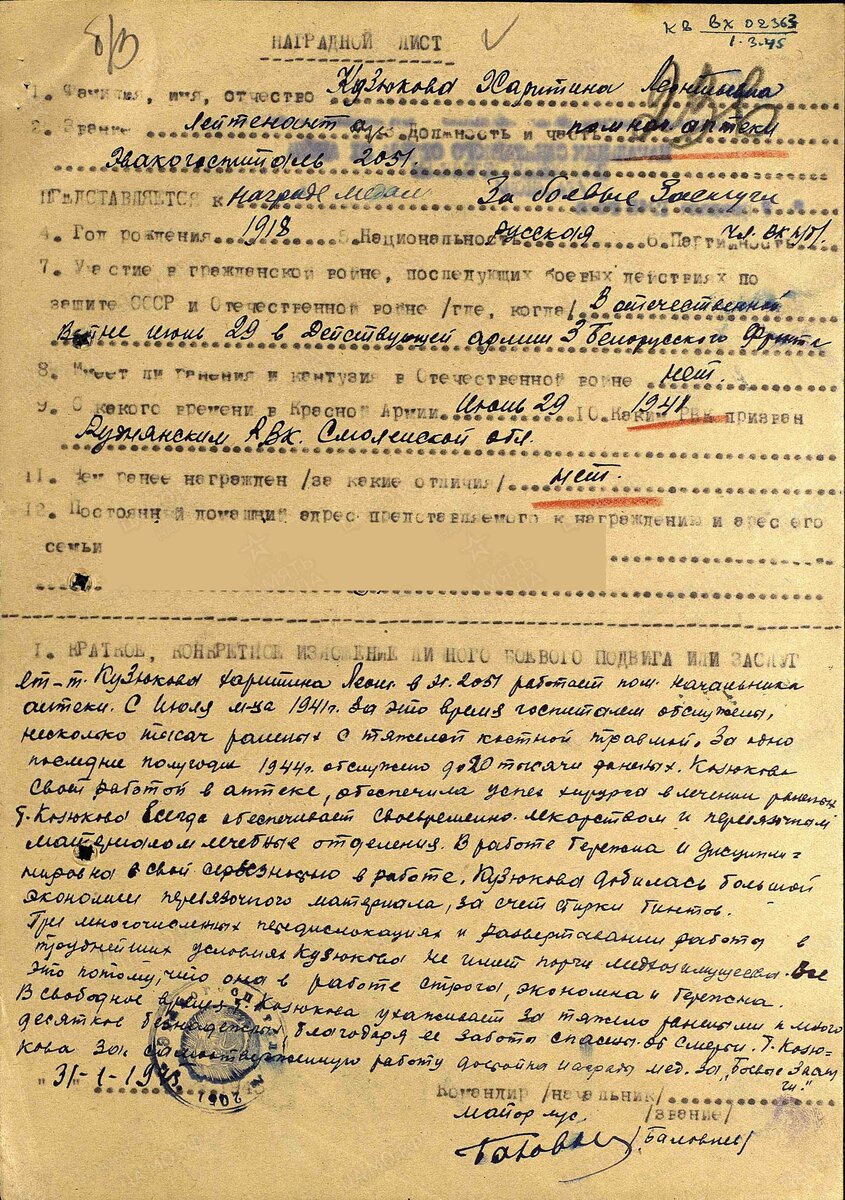 КВ ВХ 02363
1.3.45
НАГРАДНОЙ ЛИСТ
1. Фамилия, имя, отчество Кузюкова Харитина Леонтьевна
2. Звание Лейтенант а/с 3 должность и часть помнач аптеки
Эвакогоспиталь 2051.
ПРЕДСТАВЛЯЕТСЯ к награде медали За боевые Заслуги
4. Год рождения 1918 5. Национальность русская 6. Партийность чл. ВКП/б/.
7. Участие в гражданской войне, последующих боевых действиях по
защите СССР и Отечественной войне /где, когда/ В отечественной
войне июнь 29 в Действующей армии 3 Белорусского Фронта
8. Имеет ли ранения и контузия в Отечественной войне нет.
9. С какого времени в Красной Армии Июнь 29 1941 10. Каким РВК призван
Руднянским РВК. Смоленской обл.
11. Чем ранее награжден /за какие отличия/ нет.
12. Постоянный домащний адрес представляемого к награждению и арес его
семьи
1. КРАТКОЕ, КОНКРЕТНОЕ ИЗЛОЖЕНИЕ ЛИЧНОГО БОЕВОГО ПОДВИГА ИЛИ ЗАСЛУГ
Кузюкова Харитина Леон. в Эг. 2051 работает пом. начальника
аптеки. С Июля м-ца 1941г. За это время госпиталем обслужены,
несколько тысяч раненых с тяжелой костной травмой. За одно
последние полугодие 1944г. обслужено до 20 тысячи раненых. Козюкова
своей работой в аптеке, обеспечила успех хирурга в лечении раненых
т. Козюкова всегда обеспечивает своевременно лекарством и перевязочным
материалом лечебные отделения. В работе бережна и дисципли=
нирована в свой серьезностью в работе. Кузюкова добилась большой
экономии перевязочного материала, за счет стирки бинтов.
При многочисленных передислокациях и развертывании работы в
труднейших условиях Кузюкова не имеет порчи медхозимущества. Все
это потому, что она в работе строга, экономна и бережна.
В свободное время т. Козюкова ухаживает за тяжело ранеными и много
десятков безнадежных, благодаря ее забота спасены от смерти. Т. Козю-
кова За самоотверженную работу достойна награды мед. За „Боевые Заслу
ги."
"31-1-1945
Командир /начальник/
майор м/с /звание/
/Баловнев/